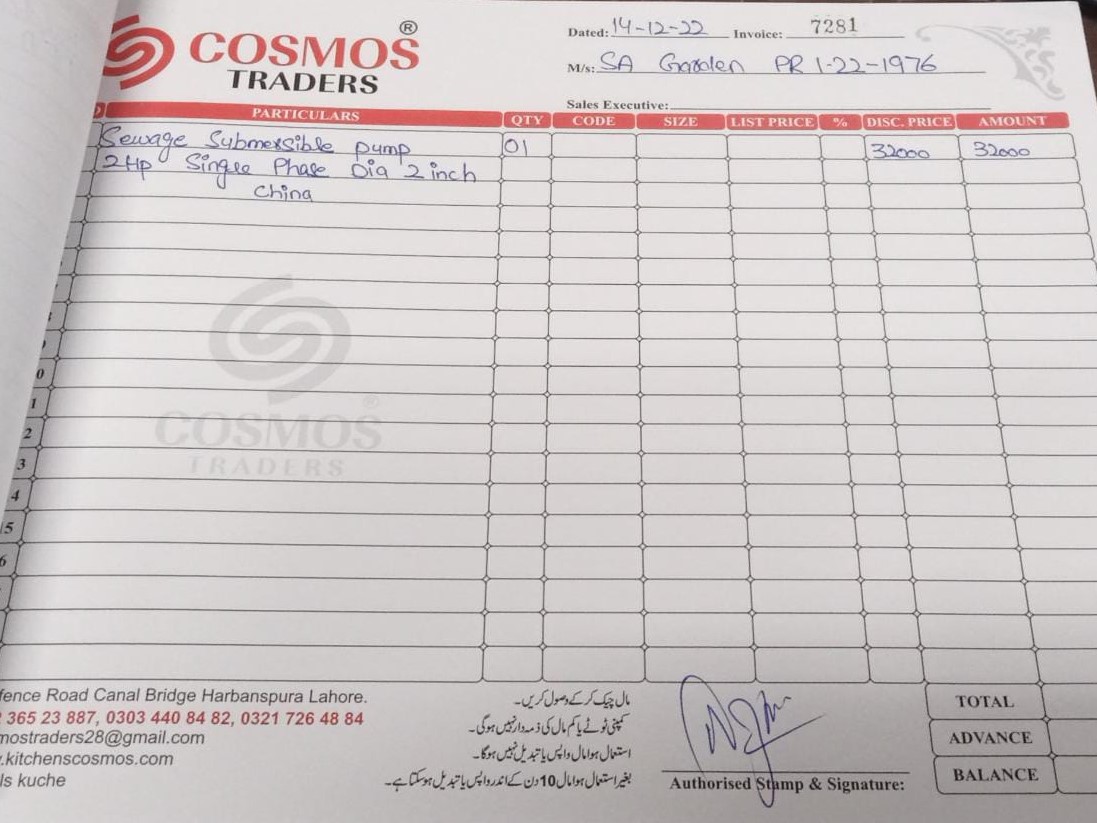 COSMOS ®
TRADERS
Dated: 14-12-22 Invoice: 7281
M/s: SA Garden PR 1-22-1976
Sales Executive:
PARTICULARS QTY CODE SIZE LIST PRICE % DISC. PRICE AMOUNT
Sewage Submersible pump 01 32000 32000
2Hp Single Phase Dia 2 inch
China
0
1
2
3
4
15
6
COSMOS
TRADERS
fence Road Canal Bridge Harbanspura Lahore.
365 23 887, 0303 440 84 82, 0321 726 48 84
mostraders28@gmail.com
.kitchenscosmos.com
ls kuche
مال چیک کر کے وصول کریں۔
کمپنی ٹوٹے یا کم مال کی ذمہ دار نہیں ہوگی۔
استعمال ہوا مال واپس یا تبدیل نہیں ہوگا۔
بغیر استعمال ہوا مال 10 دن کے اندر واپس یا تبدیل ہوسکتا ہے۔
Authorised Stamp & Signature:
TOTAL
ADVANCE
BALANCE